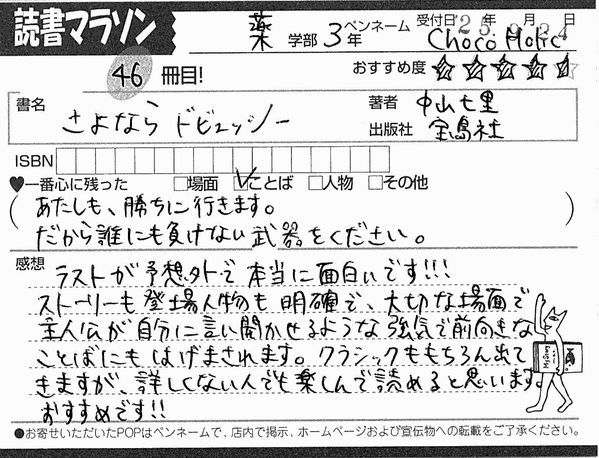 読書マラソン
薬 学部 3年 ペンネーム Choco Holic
受付日 '25年 月24日
46 冊目!
おすすめ度 ☆☆☆☆☆
書名 さよなら ドビュッシー
著者 中山七里
出版社 宝島社
ISBN
♥一番心に残った □場面 ☑ことば □人物 □その他
(あたしも、勝ちに行きます。
だから誰にも負けない武器をください。)
感想 ラストが予想外で本当に面白いです!!!
ストーリーも登場人物も明確で、大切な場面で
主人公が自分に言い聞かせるような強気で前向きな
ことばにもはげまされます。クラシックももちろん出て
きますが、詳しくない人でも楽しんで読めると思います。
おすすめです!!
●お寄せいただいたPOPはペンネームで、店内で掲示、ホームページおよび宣伝物への転載をご了承ください。